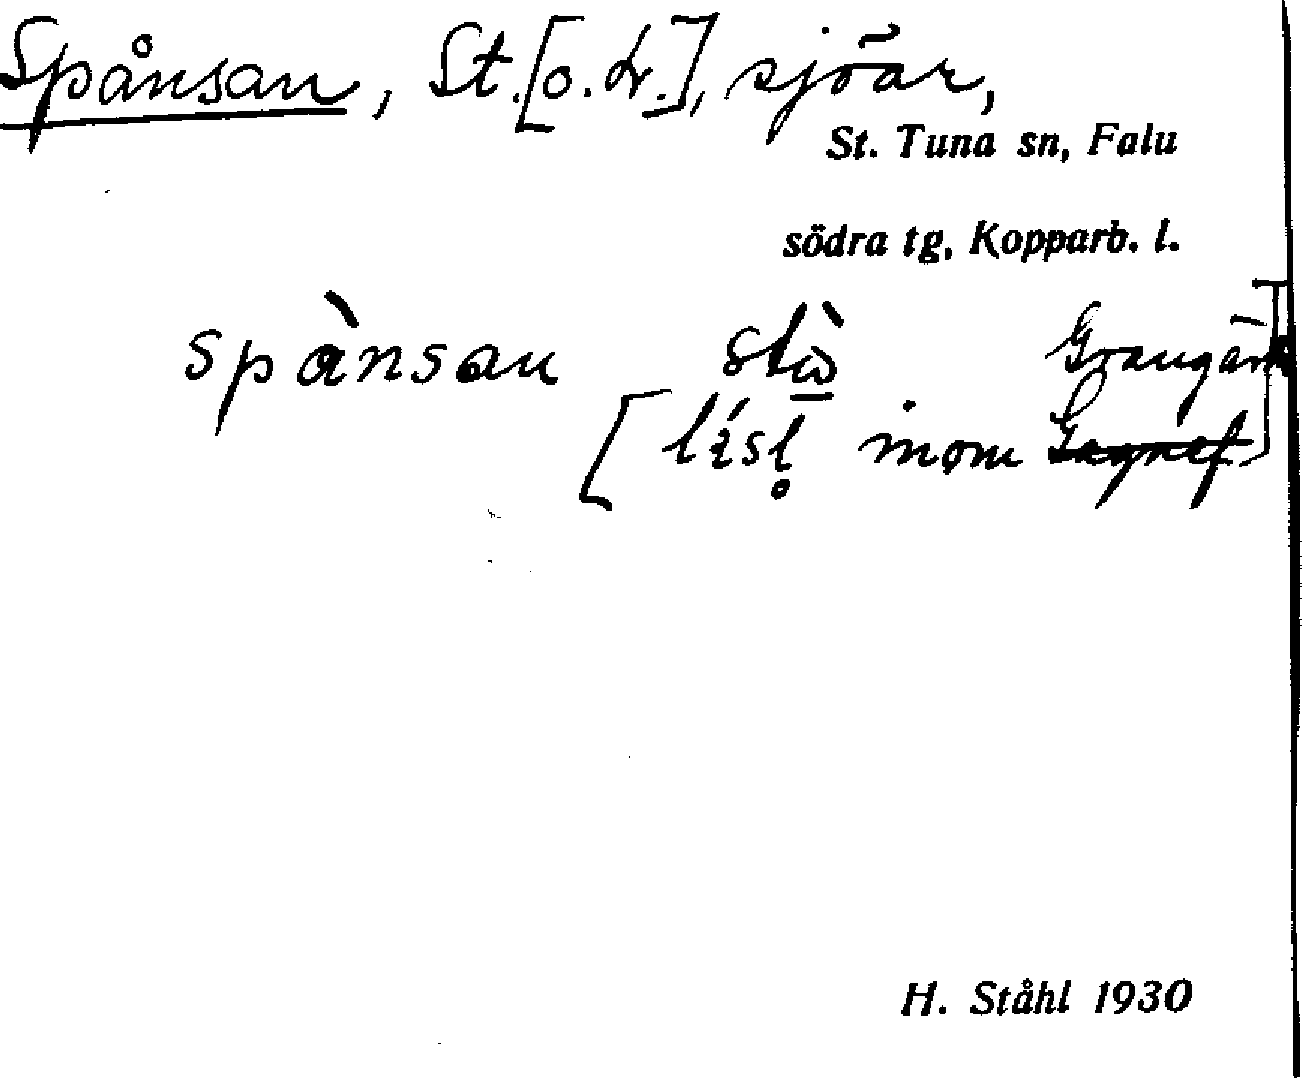 Spånsan, St. [o. L.], sjöar,
St. Tuna sn, Falu
södra tg, Kopparb. l.
spànsan stò Grangärde
[lísḷ inom Gagnef]
H. Ståhl 1930